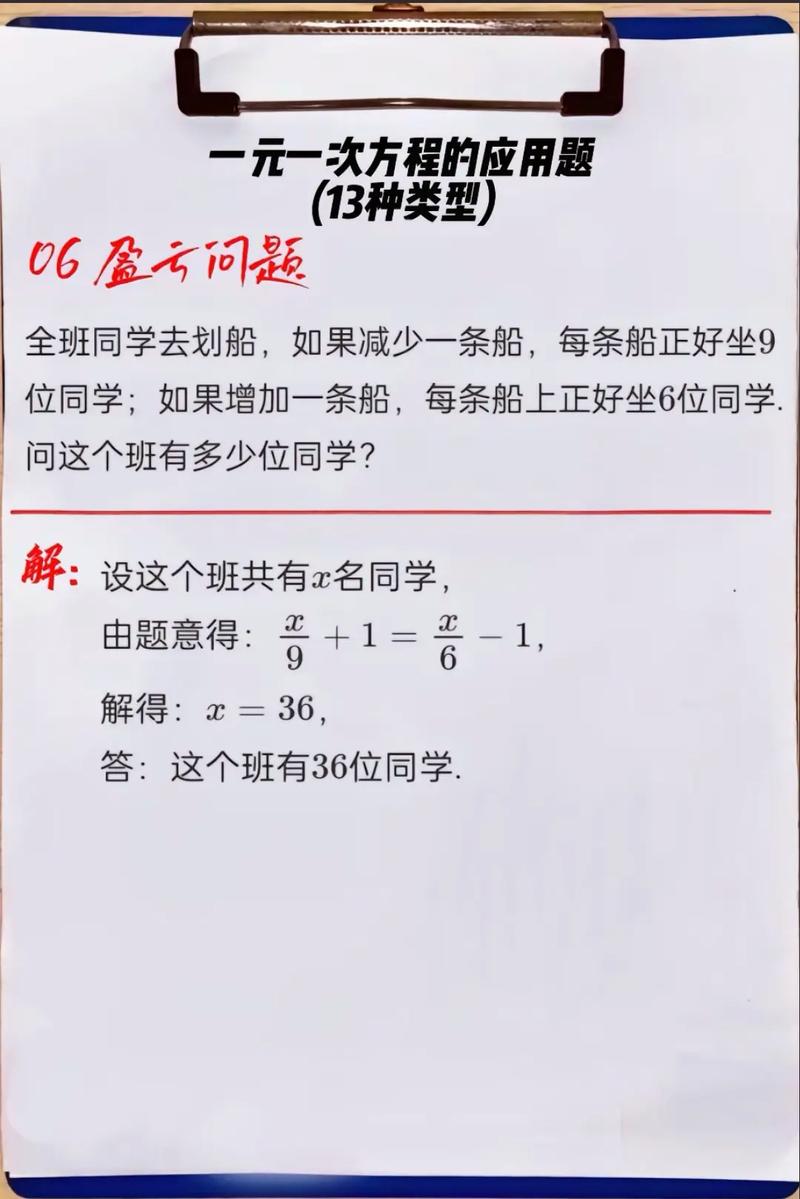 一元一次方程的应用题
(13种类型)
06 盈亏问题
全班同学去划船，如果减少一条船，每条船正好坐9
位同学；如果增加一条船，每条船上正好坐6位同学.
问这个班有多少位同学？
解：设这个班共有x名同学，
由题意得：x/9 + 1 = x/6 − 1，
解得：x = 36，
答：这个班有36位同学.